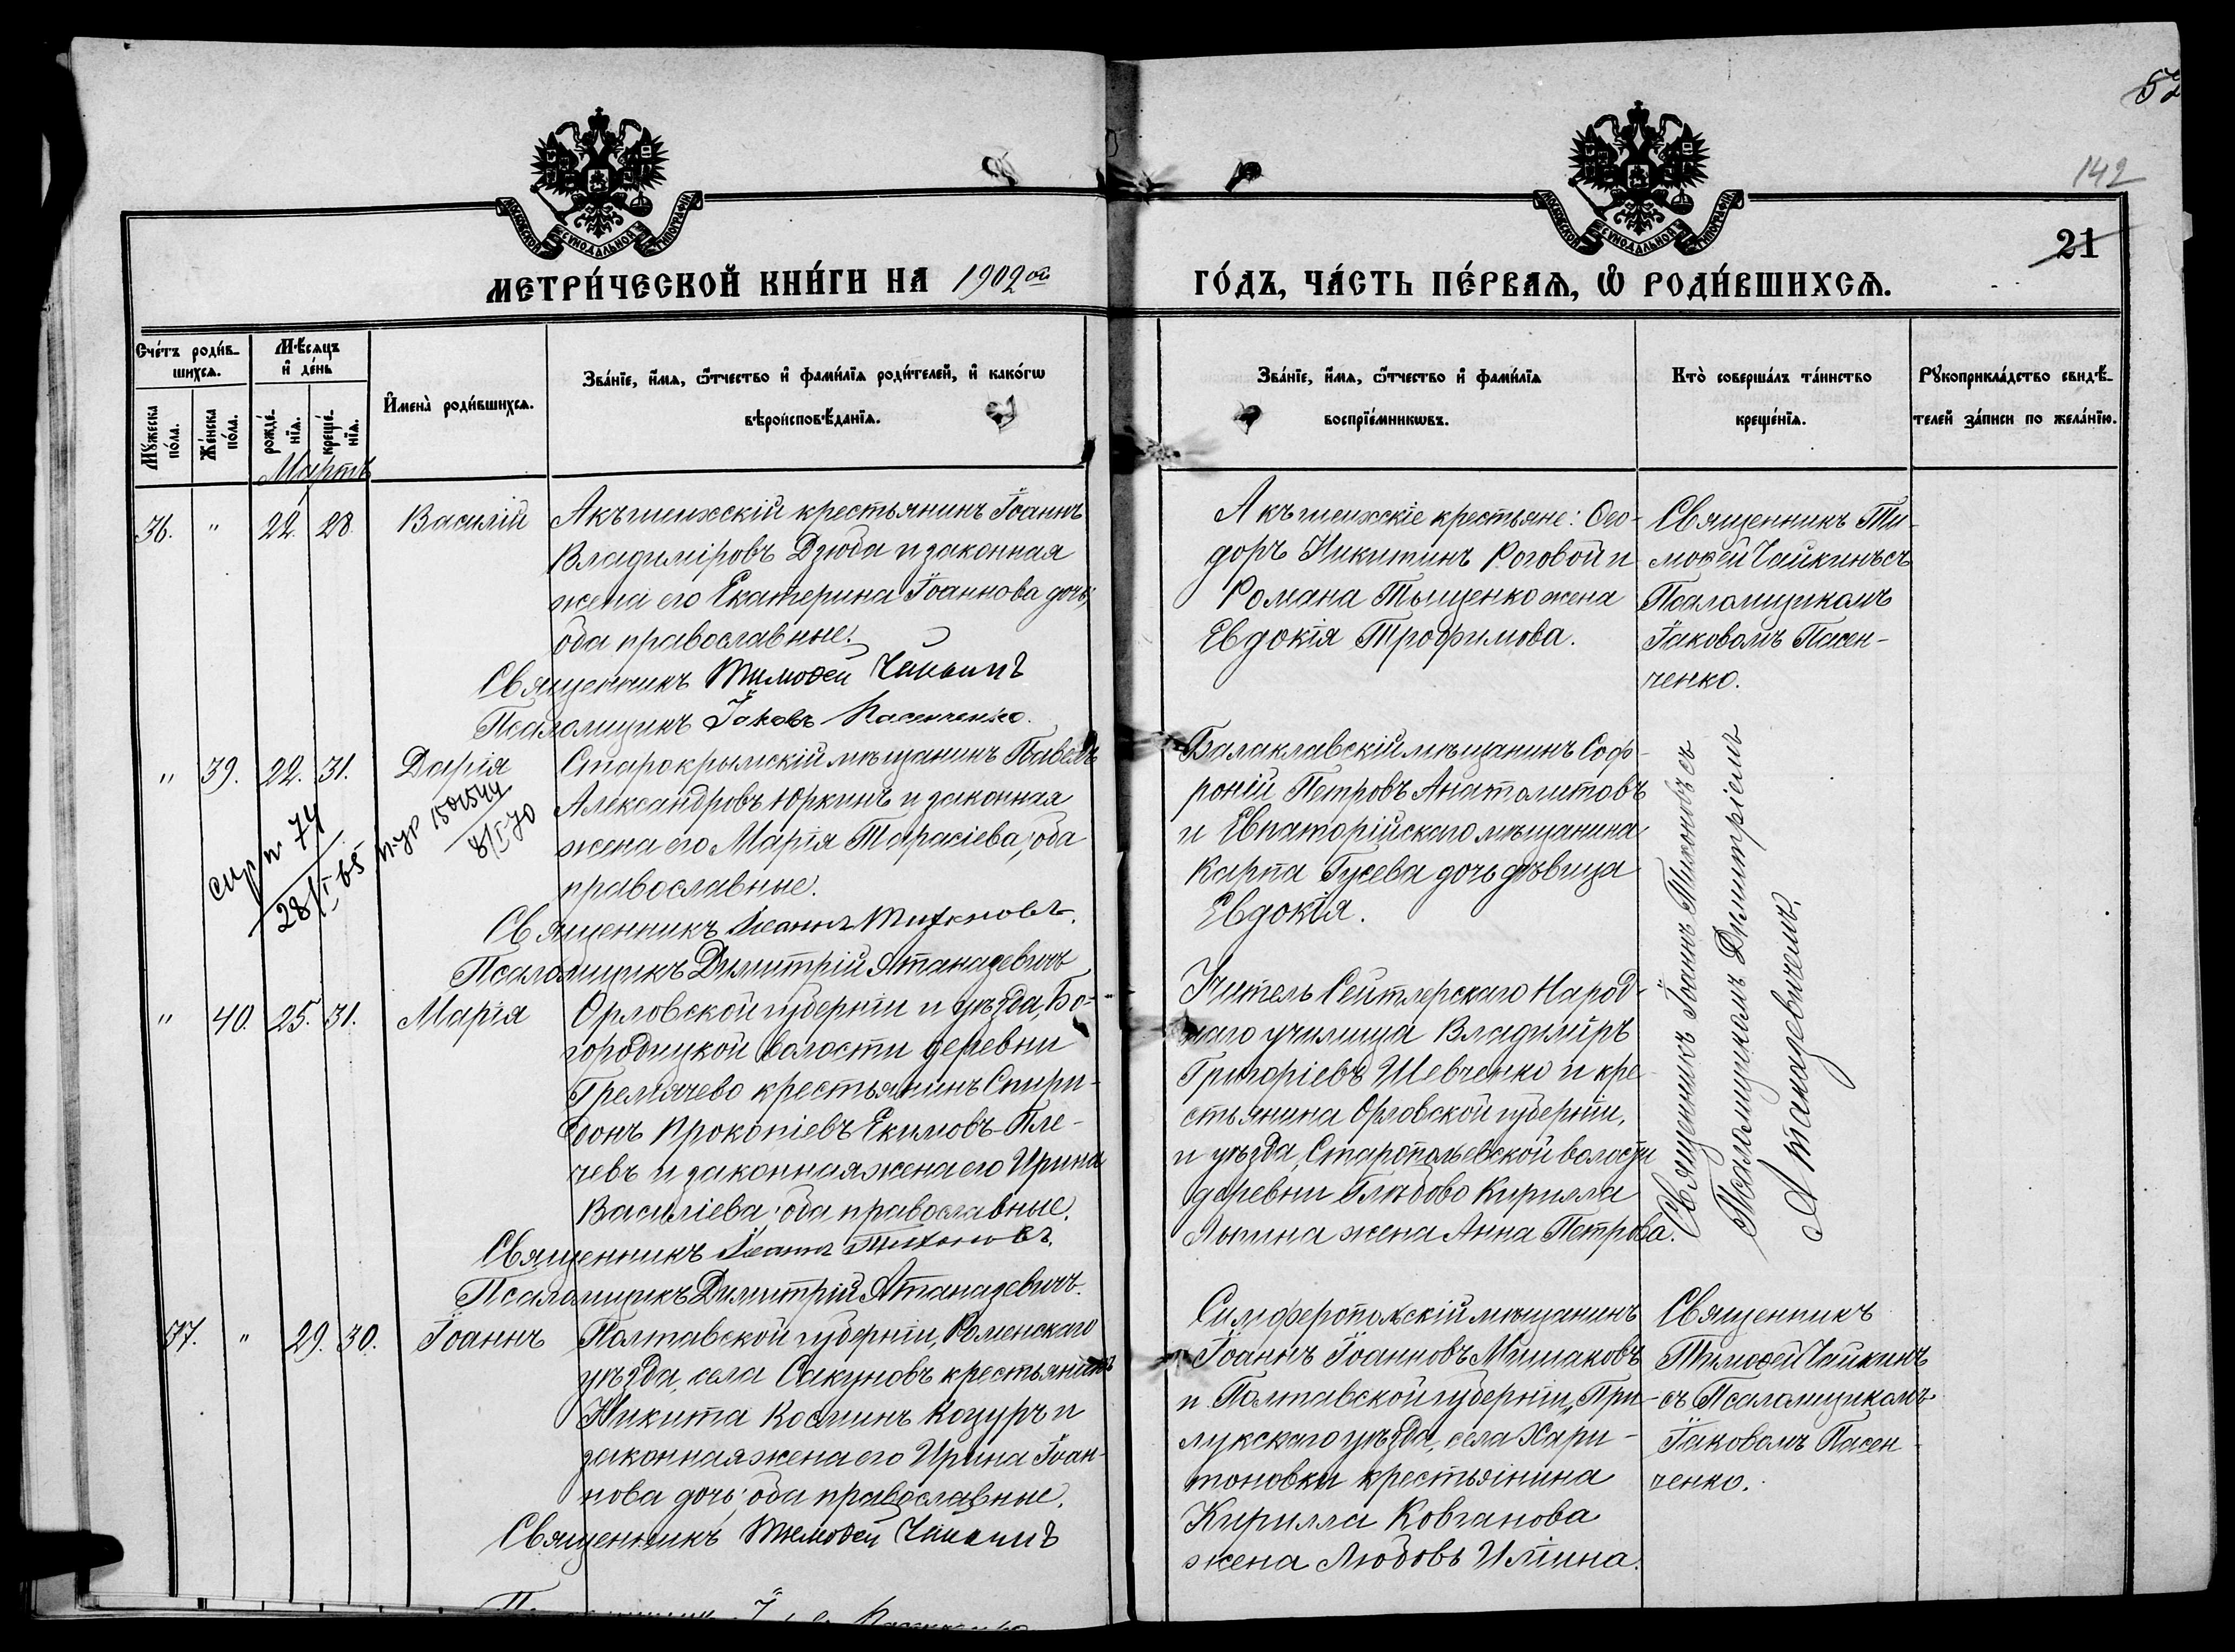 52
142
21
МОСКОВСКОЙ СѴНОДАЛЬНОЙ ТИПОГРАФІИ
МОСКОВСКОЙ СѴНОДАЛЬНОЙ ТИПОГРАФІИ
МЕТРИ́ЧЕСКОЙ КНИ́ГИ НА 1902ой
ГО́ДЪ, ЧА́СТЬ ПЕ́РВАѦ, Ѽ РОДИ́ВШИХСѦ.
Сче́тъ роди́в-
шихсѧ.
Мѣ́сѧцъ
и҆ де́нь
Мꙋ́жеска
по́ла.
Же́нска
по́ла.
рожде́-
нїѧ.
креще́-
нїѧ.
И҆мена̀ роди́вшихсѧ.
Зва́нїе, и҆́мѧ, ѻ҆́тчество и҆ фами́лїѧ роди́телей, и҆ како́гѡ
вѣроисповѣ́данїѧ.
Зва́нїе, и҆́мѧ, ѻ҆́тчество и҆ фами́лїѧ
воспрїе́мникѡвъ.
Кто̀ соверша́лъ та́инство
креще́нїѧ.
Рꙋкоприкла́дство свидѣ́-
телей за́писи по жела́нїю.
Мартъ
36. " 22. 28. Василій
Акъшеихскій крестьянинъ Іоаннъ
Владиміровъ Дзюба и законная
жена его Екатерина Іоаннова дочь;
оба православные.
Священникъ Тимоѳей Чайкинъ
Псаломщикъ Іаковъ Пасенченко.
Акъшеихскіе крестьяне: Ѳео-
доръ Никитинъ Роговой и
Романа Тыщенко жена
Евдокія Трофимова.
Священникъ Ти-
моѳей Чайкинъ съ
Псаломщикомъ
Іаковомъ Пасен-
ченко.
" 39. 22. 31. Дарія
74
28/I 65
1501544
8/I 70
Старокрымскій мѣщанинъ Павелъ
Александровъ Юркинъ и законная
жена его Марія Тарасіева; оба
православные.
Священникъ Іоаннъ Тихоновъ.
Псаломщикъ Димитрій Атаназевичъ
Балаклавскій мѣщанинъ Соф-
роній Петровъ Анатолитовъ
и Евпаторійскаго мѣщанина
Карпа Гусева дочь дѣвица
Евдокія.
Священникъ Іоаннъ Тихоновъ съ
Псаломщикомъ Димитріемъ
Атаназевичемъ.
" 40. 25. 31. Марія
Орловской губерніи и уѣзда, Бо-
городицкой волости деревни
Гремячево крестьянинъ Спири-
донъ Прокопіевъ Екимовъ-Пле-
чевъ и законная жена его Ирина
Василіева; оба православные.
Священникъ Іоаннъ Тихоновъ.
Псаломщикъ Димитрій Атаназевичъ.
Учитель Сейтлерскаго Народ-
наго училища Владиміръ
Григоріевъ Шевченко и кре-
стьянина Орловской губерніи,
и уѣзда, Старопольевской волости
деревни Глѣбово Кирилла
жена Анна Петрова.
37. " 29. 30. Іоаннъ
Полтавской губерніи, Роменскаго
уѣзда, села Сакуновъ крестьянинъ
Никита Косминъ Коцуръ и
законная жена его Ирина Іоан-
нова дочь; оба православные.
Священникъ Тимоѳей Чайкинъ
Псаломщикъ Іаковъ Пасенченко
Симферопольскій мѣщанинъ
Іоаннъ Іоанновъ Мишаковъ
и Полтавской губерніи, При-
лукскаго уѣзда, села Хари-
тоновки крестьянина
Кирилла Ковганова
жена Любовь Иліина.
Священникъ
Тимоѳей Чайкинъ
съ Псаломщикомъ
Іаковомъ Пасен-
ченко.